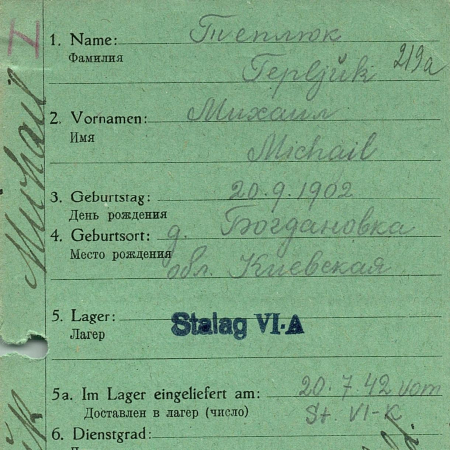 I
1. Name: Теплюк
Фамилия Tepljuk 219a
2. Vornamen: Михаил
Имя Michail
3. Geburtstag: 20.9.1902
День рождения
4. Geburtsort: д. Богдановка
Место рождения обл. Киевская
5. Lager: Stalag VI-A
Лагер
5a. Im Lager eingeliefert am: 20.7.42 vom
Доставлен в лагер (число) St. VI-K
6. Dienstgrad:
Michail